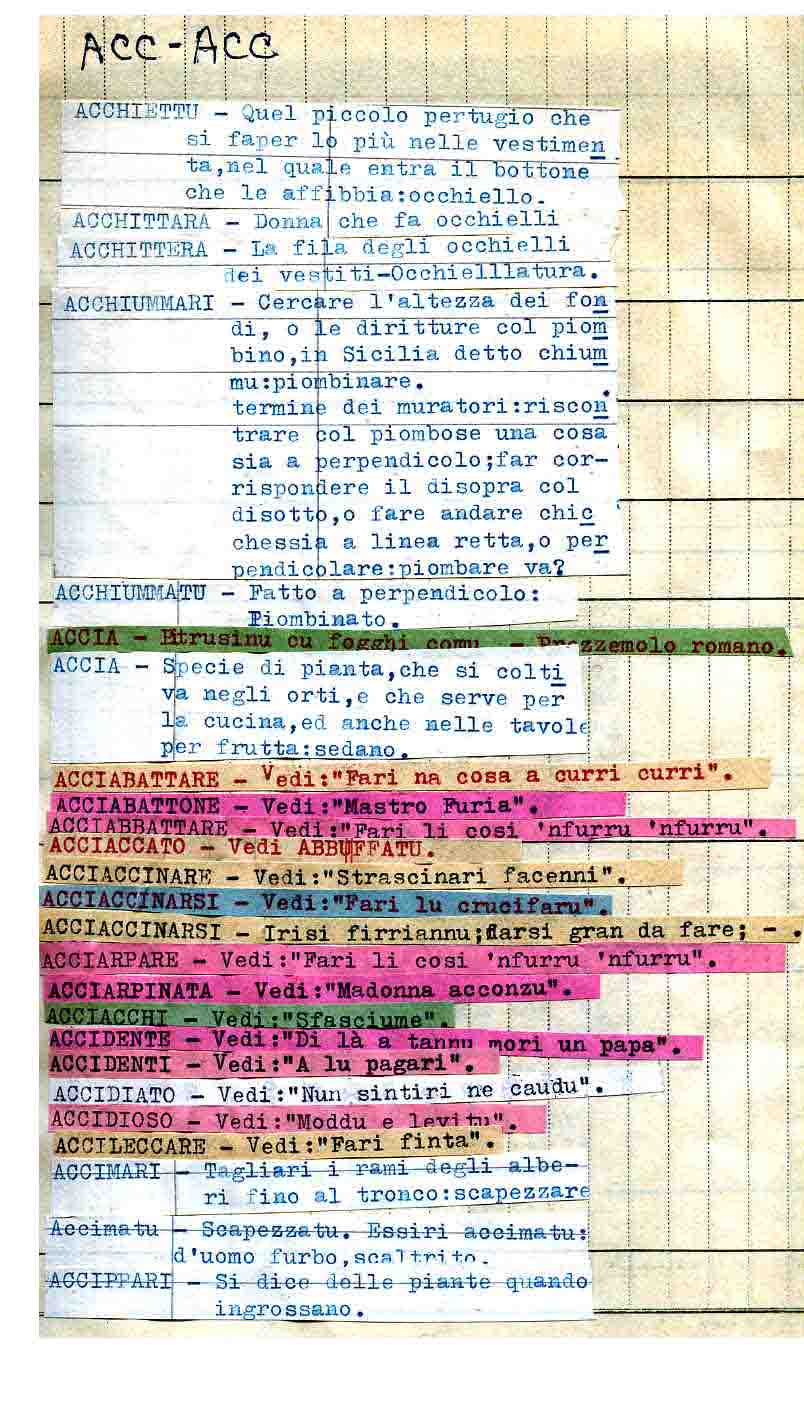 ACC-ACC
ACCHIETTU - Quel piccolo pertugio che
si faper lo più nelle vestimen
ta,nel quale entra il bottone
che le affibbia:occhiello.
ACCHITTARA - Donna che fa occhielli
ACCHITTERA - La fila degli occhielli
dei vestiti-Occhielllatura.
ACCHIUMMARI - Cercare l'altezza dei fon
di, o le diritture col piom
bino,in Sicilia detto chium
mu:piombinare.
termine dei muratori:riscon
trare col piombose una cosa
sia a perpendicolo;far cor-
rispondere il disopra col
disotto,o fare andare chic
chessia a linea retta,o per
pendicolare:piombare va?
ACCHIUMMATU - Fatto a perpendicolo:
Piombinato.
ACCIA - Pitrusinu cu fogghi comu - Prezzemolo romano.
ACCIA - Specie di pianta,che si colti
va negli orti,e che serve per
la cucina,ed anche nelle tavole
per frutta:sedano.
ACCIABATTARE - Vedi:"Fari na cosa a curri curri".
ACCIABATTONE - Vedi:"Mastro Furia".
ACCIABBATTARE - Vedi:"Fari li cosi 'nfurru 'nfurru".
ACCIACCATO - Vedi ABBUFFATU.
ACCIACCINARE - Vedi:"Strascinari facenni".
ACCIACCINARSI - Vedi:"Fari lu crucifaru".
ACCIACCINARSI - Irisi firriannu;darsi gran da fare; - .
ACCIARPARE - Vedi:"Fari li cosi 'nfurru 'nfurru".
ACCIARPINATA - Vedi:"Madonna acconzu".
ACCIACCHI - Vedi:"Sfasciume".
ACCIDENTE - Vedi:"Di là a tannu mori un papa".
ACCIDENTI - Vedi:"A lu pagari".
ACCIDIATO - Vedi:"Nun sintiri ne caudu".
ACCIDIOSO - Vedi:"Moddu e levitu".
ACCILECCARE - Vedi:"Fari finta".
ACCIMARI - Tagliari i rami degli albe-
ri fino al tronco:scapezzare
Accimatu - Scapezzatu. Essiri accimatu:
d'uomo furbo,scaltrito.
ACCIPPARI - Si dice delle piante quando
ingrossano.